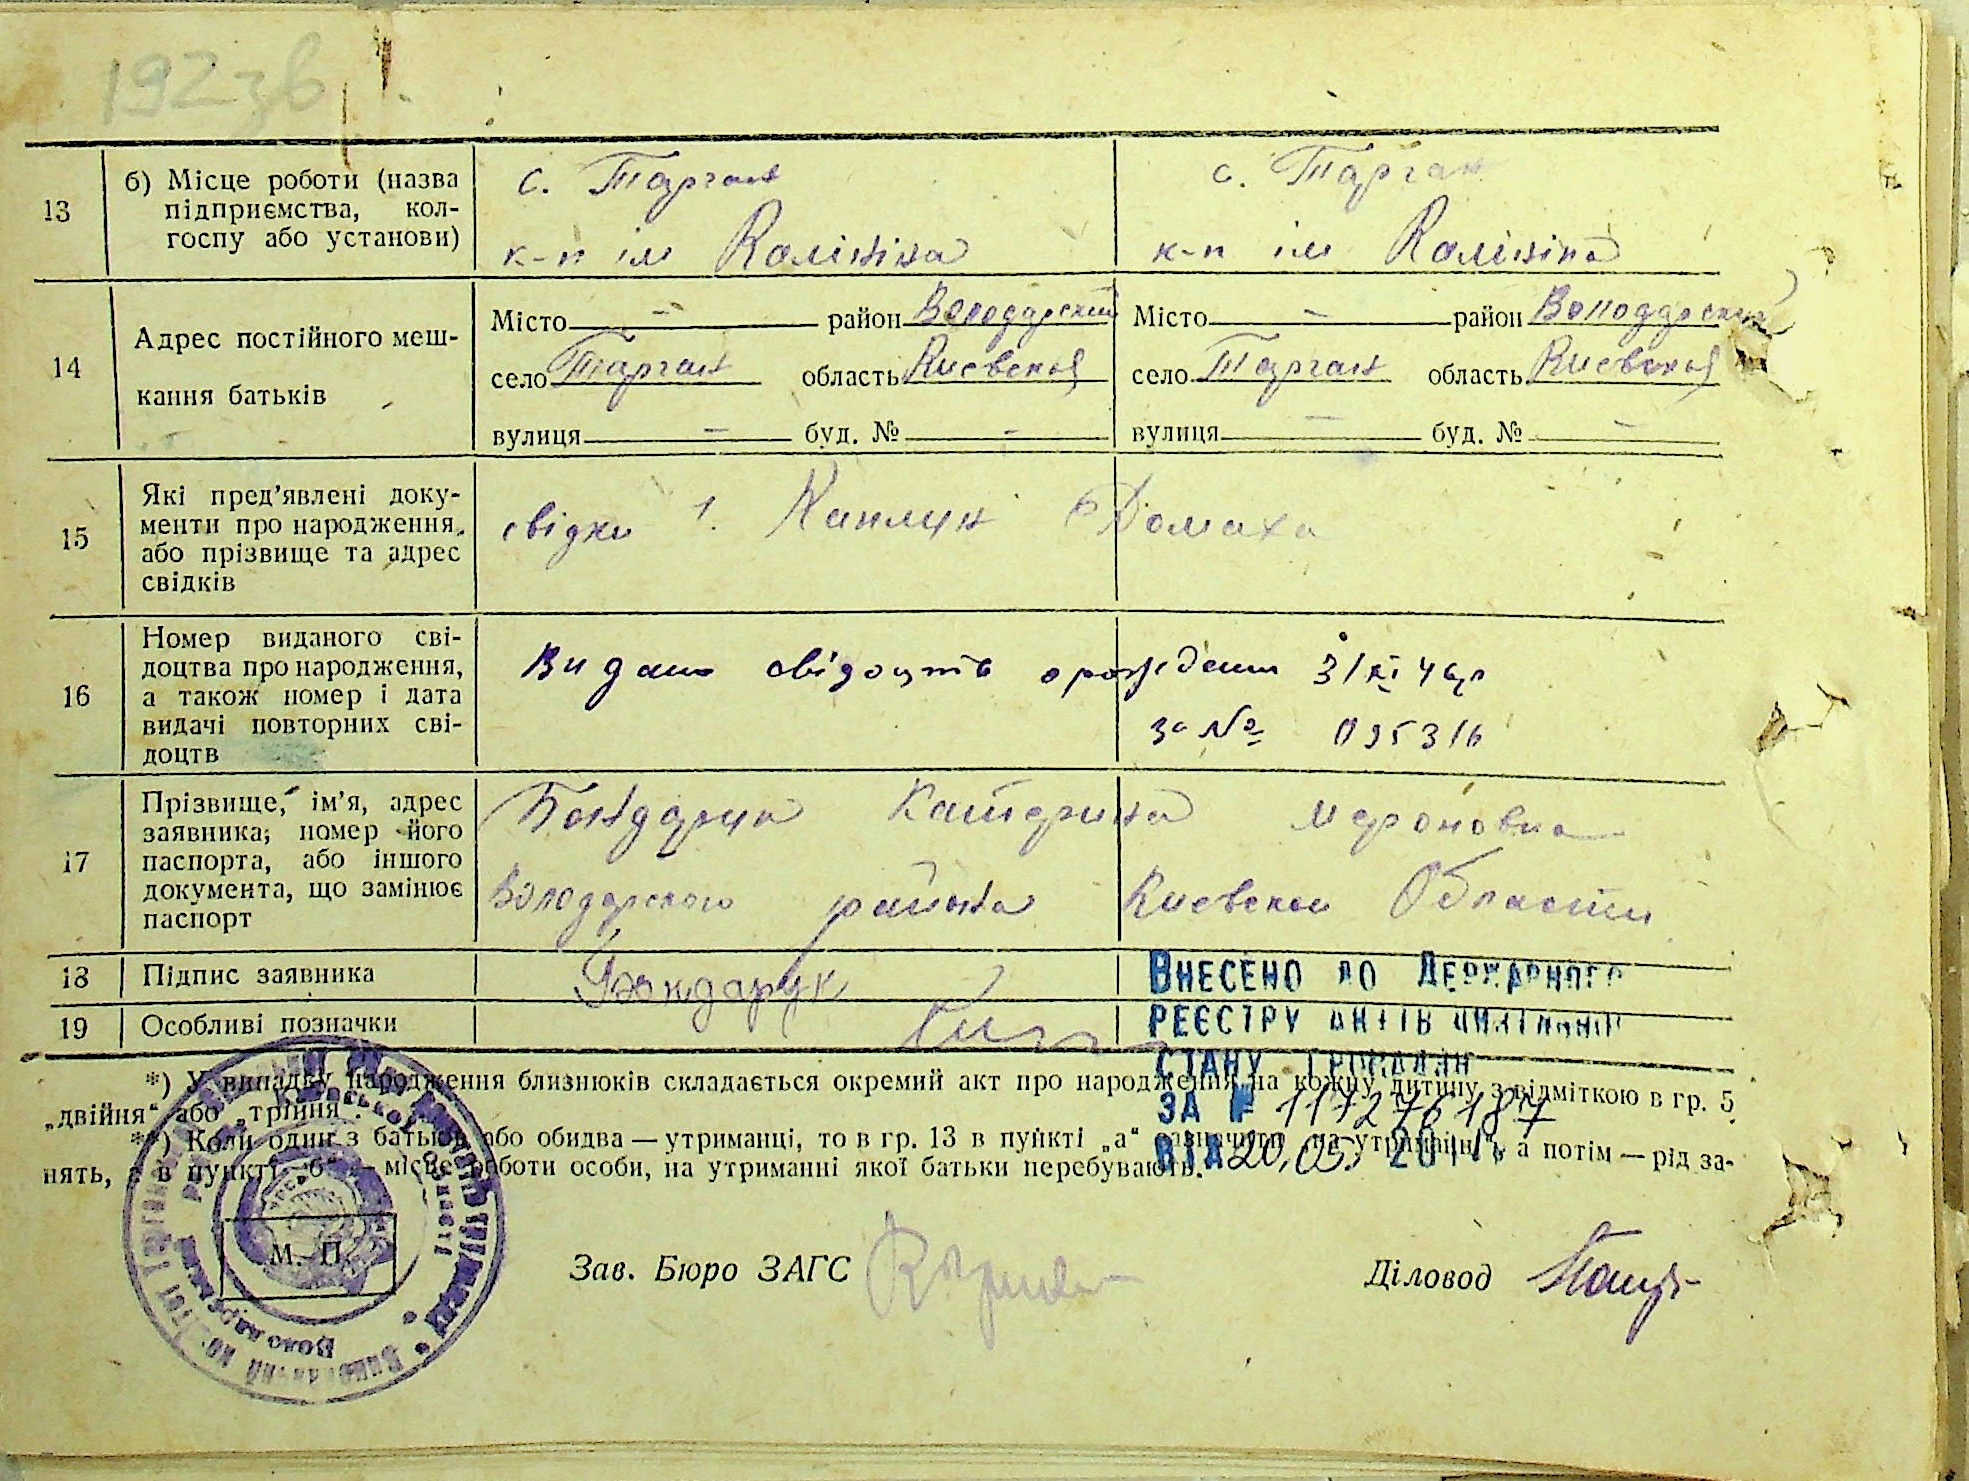 192зв
13
б) Місце роботи (назва
підприємства, кол-
госпу або установи)
с. Тарган
к-п ім Калініна
с. Тарган
к-п ім Калініна
14
Адрес постійного меш-
кання батьків
Місто — район Володарский
село Тарган область Киевская
вулиця — буд. № —
Місто — район Володарский
село Тарган область Киевская
вулиця — буд. № —
15
Які пред’явлені доку-
менти про народження,
або прізвище та адрес
свідків
свідки 1. Каплун Домаха
16
Номер виданого сві-
доцтва про народження,
а також номер і дата
видачі повторних сві-
доцтв
Видано свідоцтв о рождении 31/XI 46р
за № 095316
17
Прізвище, ім’я, адрес
заявника; номер його
паспорта, або іншого
документа, що замінює
паспорт
Бондарук Катерина Мероновна
Володарского района Киевской Области
18
Підпис заявника
Бондарук
19
Особливі позначки
ВНЕСЕНО ДО ДЕРЖАРНОГО
РЕЄСТРУ АКТІВ ЦИВІЛЬНОГО
СТАНУ ГРОМАДЯН
ЗА № 11727618
ВІД 20.05. 201
*) У випадку народження близнюків складається окремий акт про народження на кожну дитину з відміткою в гр. 5
„двійня“ або „трійня“.
**) Коли один з батьків або обидва — утриманці, то в гр. 13 в пункті „а“ зазначити „на утриманні“, а потім — рід за-
нять, а в пункті „б“ — місце роботи особи, на утриманні якої батьки перебувають.
М. П.
Зав. Бюро ЗАГС
Діловод